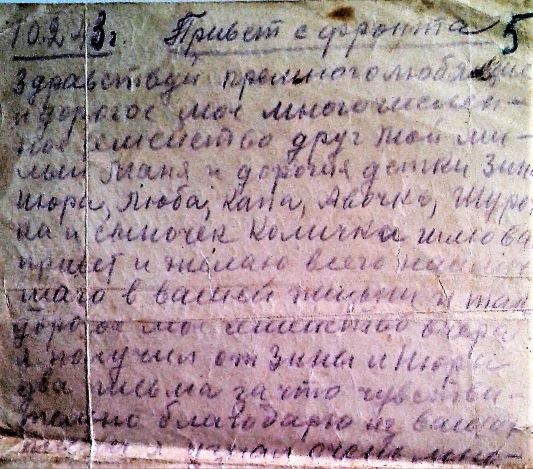 10.2-43г. Привет с фронта 5
Здравствуй премноголюбящие
и дорогое мое многочислен-
ное семейство друг мой ми-
лый Маня и дорогия детки Зина
Нюра, Люба, Капа, Авочка, Шуроч
ка и сыночек Количка шлю вам
привет и желаю всего наилуч
шаго в вашей жизни и так
дорогое мое семейство вчера
я получил от Зины и Нюры
два письма за что чувстви-
тельно благодарю из ваших
писем я узнал очень мно-